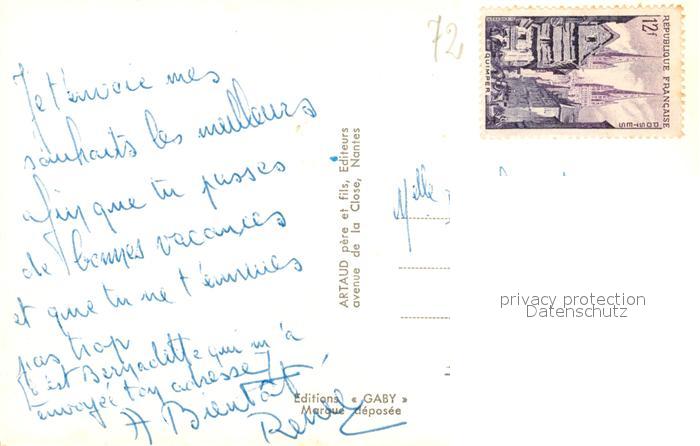 72
Je t'envoie mes
souhaits les meilleurs
afin que tu passes
de bonnes vacances
et que tu ne t'ennuies
pas trop
c'est Bernadette qui m'a
envoyée ton adresse
A Bientôt
Renée
ARTAUD père et fils, Editeurs
avenue de la Close, Nantes
Editions « GABY »
Marque déposée
12f
REPUBLIQUE FRANÇAISE
POSTES
QUIMPER
Mlle
privacy protection
Datenschutz